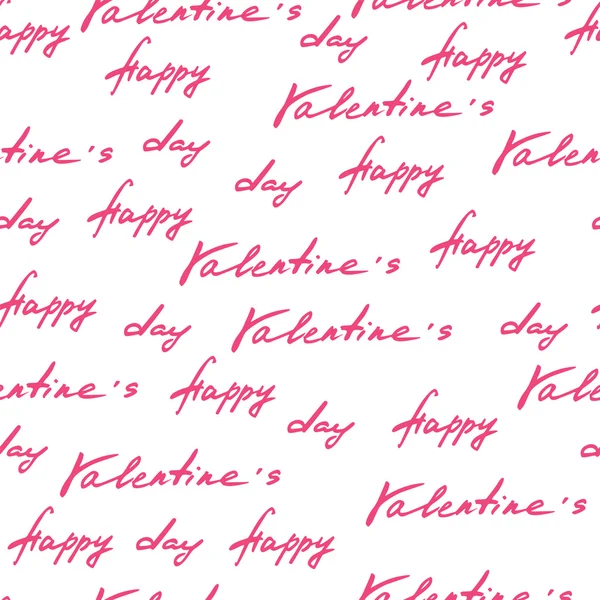 appy Valentine's day
Happy Happy
Valentine's
tine's day Valen
day Happy
day Happy
Valentine's Happy
Happy day Valentine's day
entine's Happy Val
day Happy
day Valentine's
Valentine's
Happy day Happy